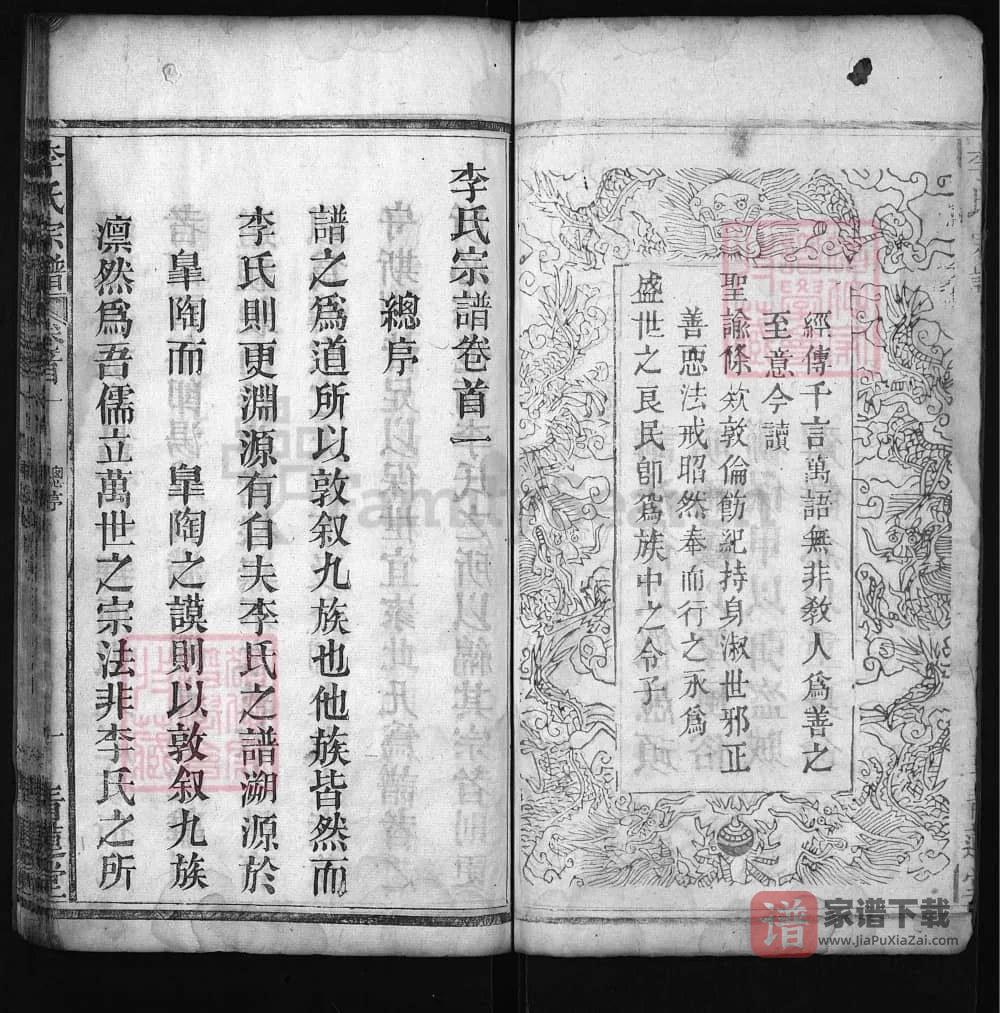 經傳千言萬語無非教人爲善之
至意今讀
聖諭條欵敦倫飭紀持身淑世邪正
善惡法戒昭然奉而行之永爲
盛世之良民師爲族中之令子
李氏宗譜卷首一
總序
譜之爲道所以敦叙九族也他族皆然而
李氏則更淵源有自夫李氏之譜溯源於
皐陶而 皐陶之謨則以敦叙九族
凛然爲吾儒立萬世之宗法非李氏之所
李氏宗譜
卷首一
總序
一
青蓮堂
家谱下载
www.JiaPuXiaZai.com
谱